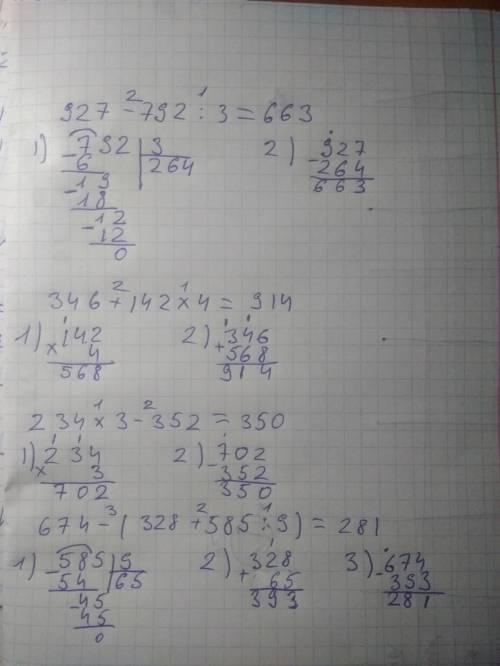 927 - 792 : 3 = 663
2 1
1) 792 | 3
- 6 264
- 19
18
- 12
12
0
2) 927
- 264
663
346 + 142 x 4 = 914
2 1
1) 142
x 4
568
2) 346
+ 568
914
234 x 3 - 352 = 350
1 2
1) 234
x 3
702
2) 702
- 352
350
674 - (328 + 585 : 9) = 281
3 2 1
1) 585 | 9
- 54 65
- 45
45
0
2) 328
+ 65
393
3) 674
- 393
281